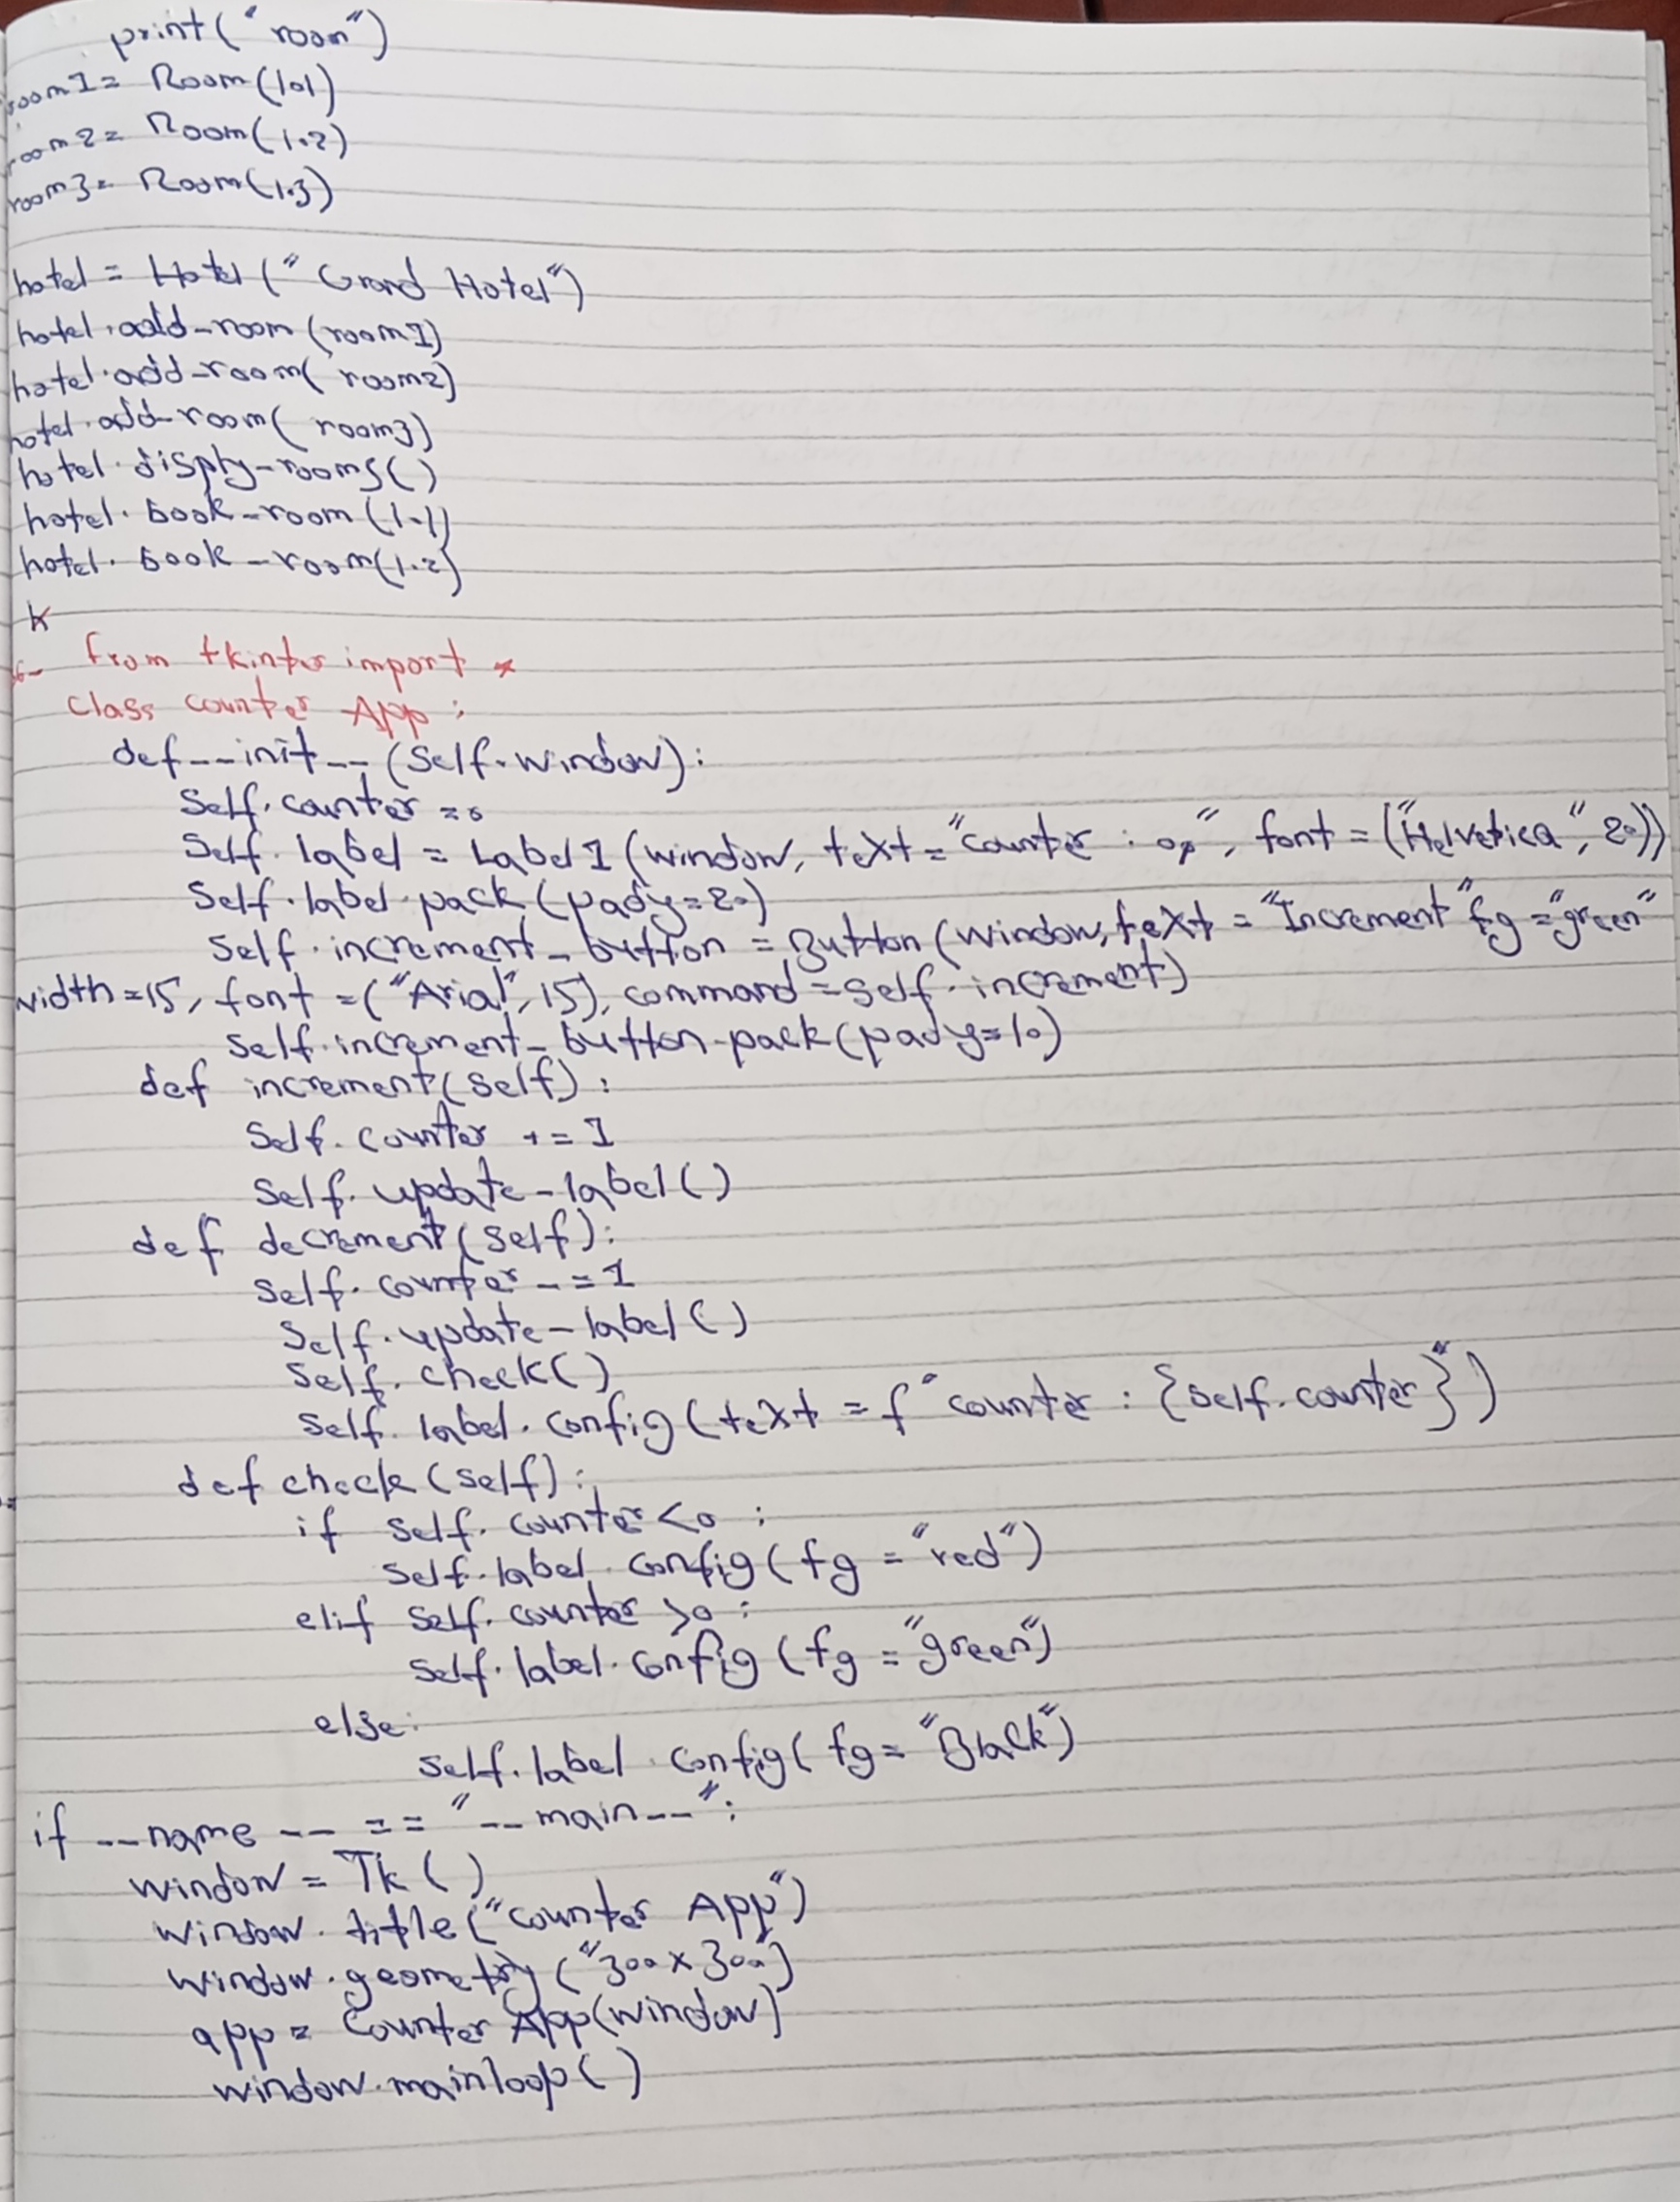 print("room")
room1= Room(101)
room2= Room(1.2)
room3= Room(1.3)
hotel = Hotel("Grand Hotel")
hotel.add-room(room1)
hotel.add-room(room2)
hotel.add-room(room3)
hotel.disply-rooms()
hotel.book-room(1.1)
hotel.book-room(1.2)
from tkinter import *
class counter App:
def--init--(self.window):
self.counter =0
self.label = Label1(window, text="counter : op", font=("Helvetica", 20))
self.label.pack(pady=20)
self.increment_button = Button(window,text="Increment" fg="green"
width=15, font=("Arial",15), command=self.increment)
self.increment_button.pack(pady=10)
def increment(self):
self.counter +=1
self.update-label()
def decrement(self):
self.counter -=1
self.update-label()
self.check()
self.label.config(text=f"counter : {self.counter}")
def check(self):
if self.counter<0 :
self.label.config(fg="red")
elif self.counter >0 :
self.label.config(fg="green")
else:
self.label.config(fg="Black")
if --name-- == "--main--":
window = Tk()
window.title("counter App")
window.geometry("300x300")
app= Counter App(window)
window.mainloop()